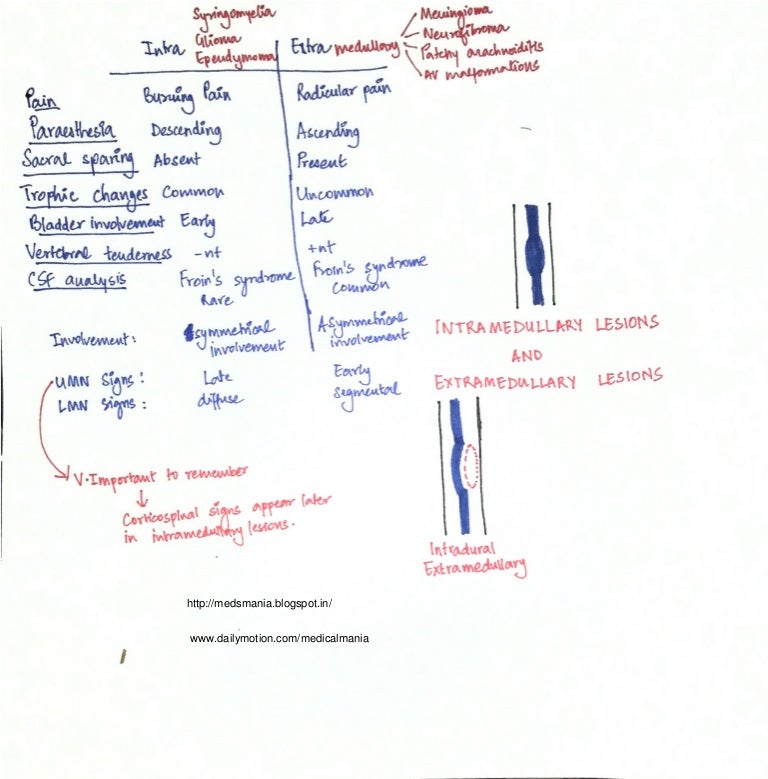 Syringomyelia
Glioma
Ependymoma
Meningioma
Neurofibroma
Patchy arachnoiditis
AV malformations
Intra Extra medullary
Pain Burning Pain Radicular pain
Paraesthesia Descending Ascending
Sacral sparing Absent Present
Trophic changes Common Uncommon
Bladder involvement Early Late
Vertebral tenderness -nt +nt
CSF analysis Froin's syndrome Rare Froin's syndrome common
Involvement: symmetrical involvement Asymmetrical involvement
UMN Signs: Late Early
LMN Signs: diffuse segmental
INTRAMEDULLARY LESIONS
AND
EXTRAMEDULLARY LESIONS
V. Important to remember
Corticospinal signs appear later
in intramedullary lesions.
Intradural
Extramedullary
http://medsmania.blogspot.in/
www.dailymotion.com/medicalmania